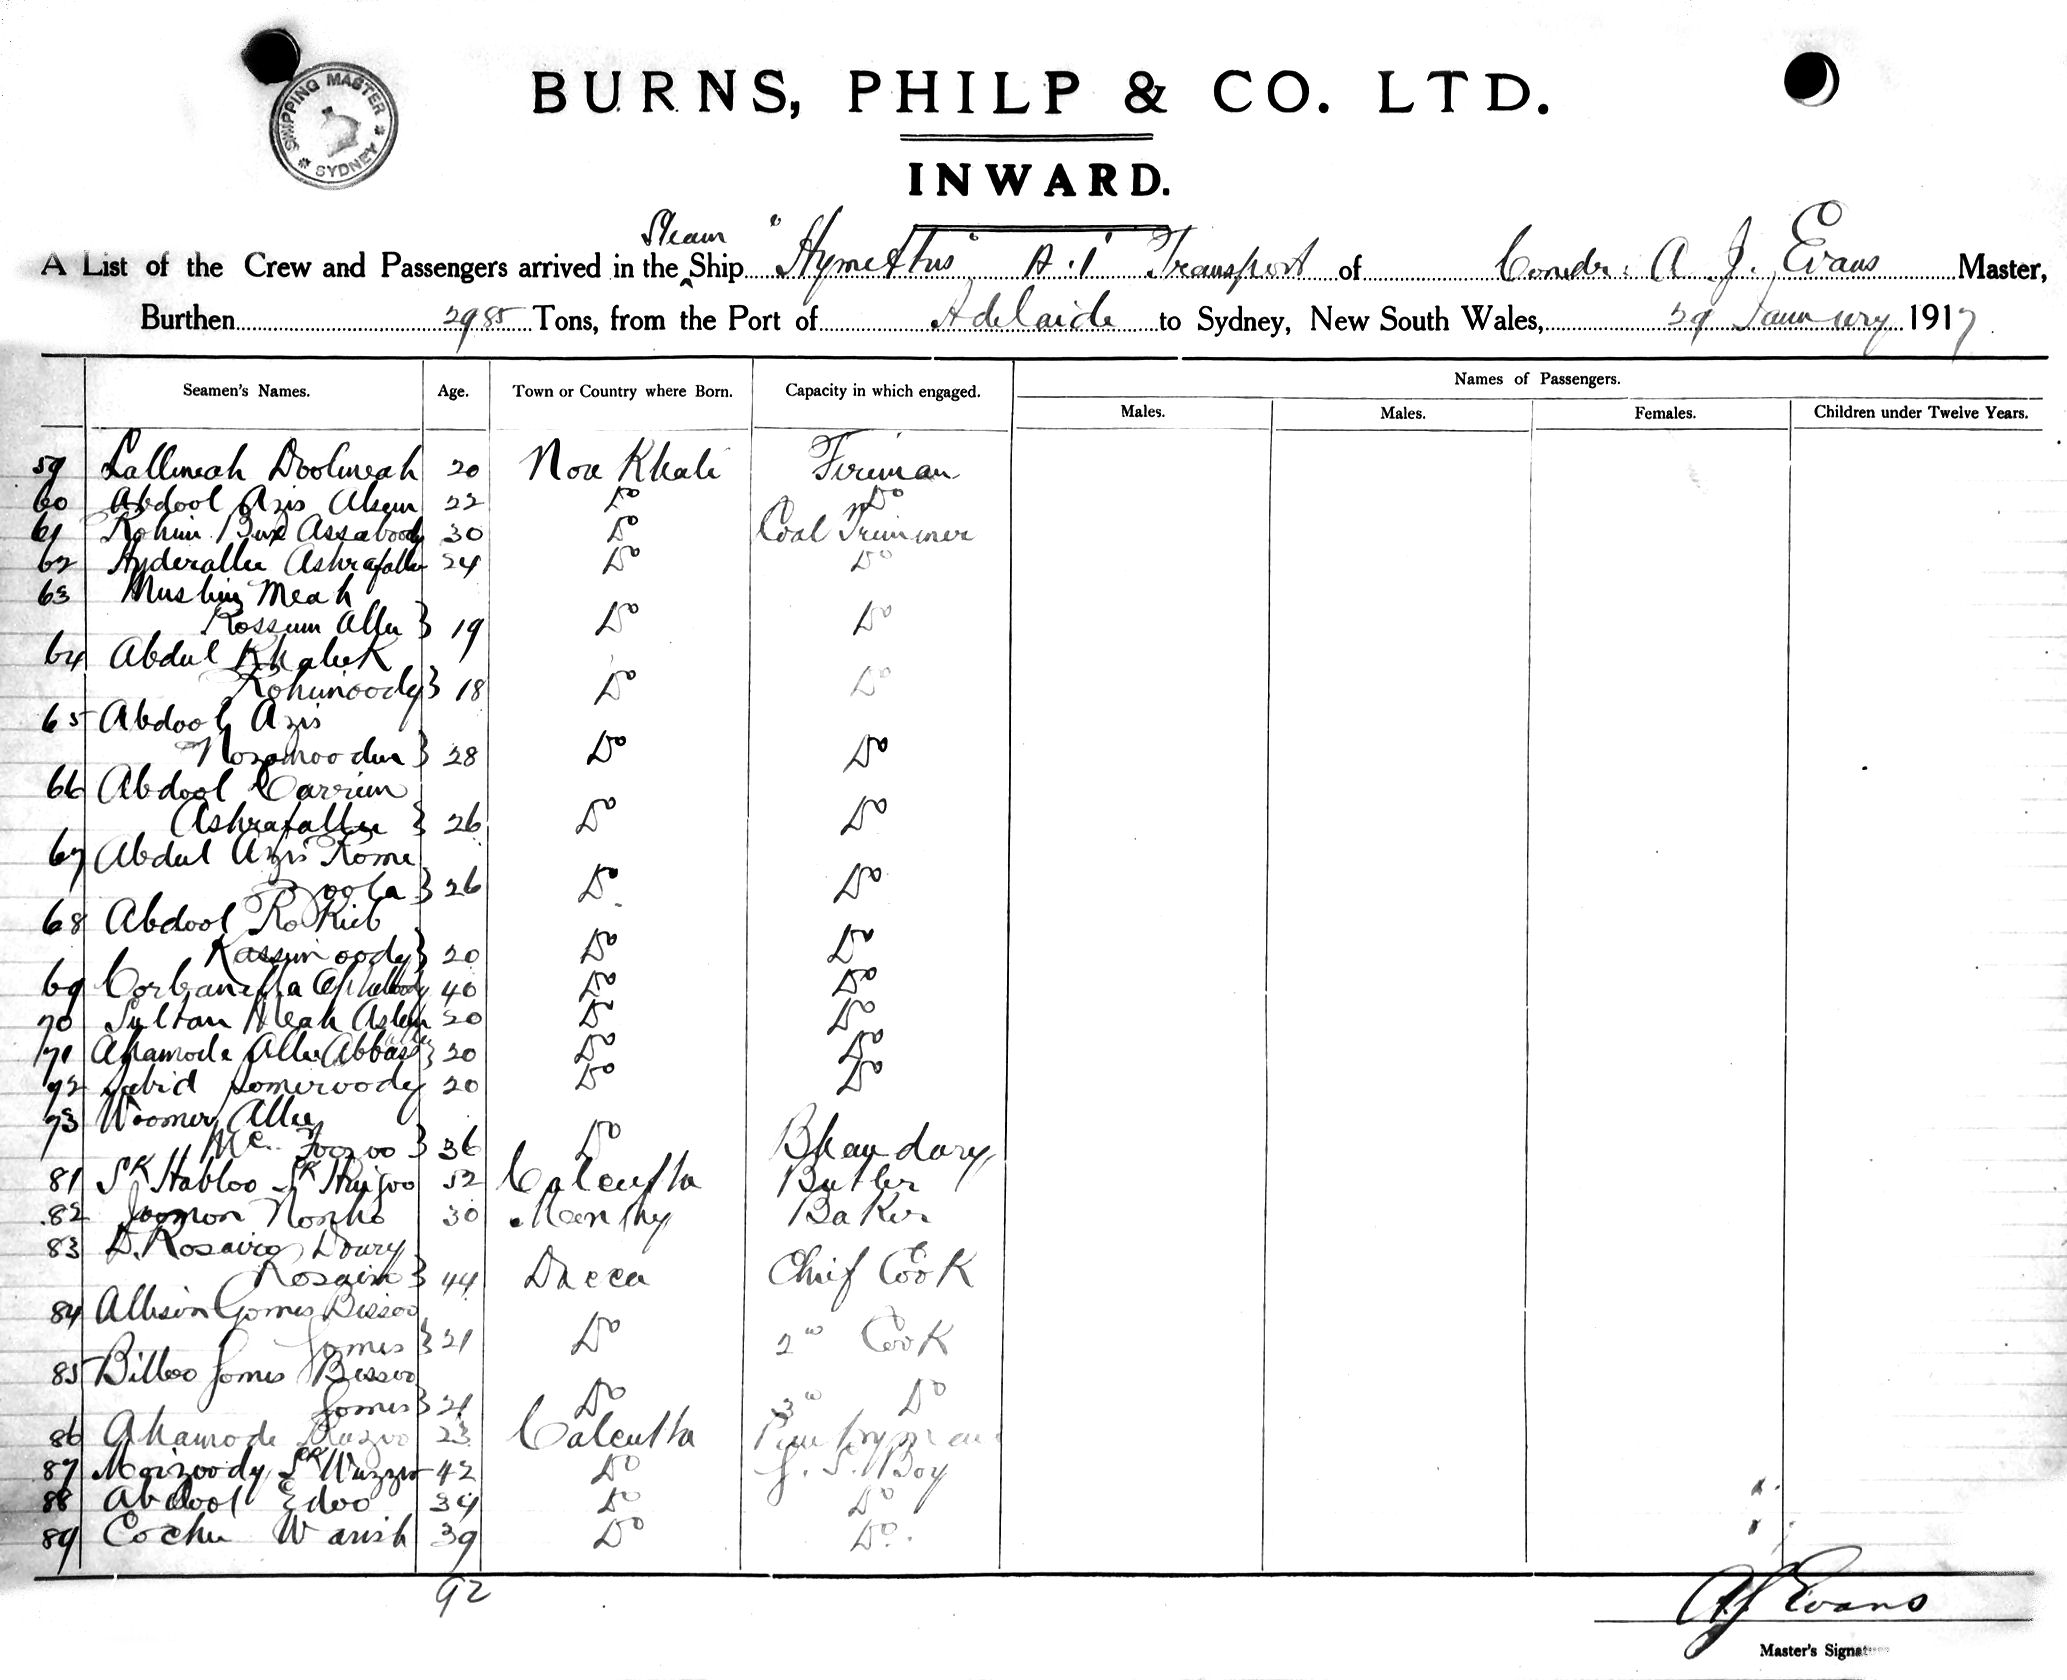 SHIPPING MASTER
SYDNEY
BURNS, PHILP & CO. LTD.
INWARD.
Steam
A List of the Crew and Passengers arrived in the Ship "Hymettus" A.1 Transport of Comdr: A. J. Evans Master,
Burthen 2985 Tons, from the Port of Adelaide to Sydney, New South Wales, 29 January 1917
Seamen's Names. Age. Town or Country where Born. Capacity in which engaged. Names of Passengers.
Males. Males. Females. Children under Twelve Years.
59 Lallmeah Doolmeah 20 Noa Khali Fireman
60 Abdool Azis Alsem 22 Do Do
61 Rohim Bux Assaboody 30 Do Coal Trimmer
62 Hyderallee Ashrafallee 24 Do Do
63 Muslim Meah
Rossum Allee } 19 Do Do
64 Abdul Khaleek
Rohimoody } 18 Do Do
65 Abdool Azis
Nosomoodin } 28 Do Do
66 Abdool Carrim
Ashrafallee } 26 Do Do
67 Abdul Azis Rome
} 26 Do Do
68 Abdool Rokieb
Kassimoody } 20 Do Do
69 40 Do Do
70 Sultan Meah 20 Do Do
71 Ahamode Allee Abbass } 20 Do Do
72 Sabid Someroody 20 Do Do
73 Woomer Allee
Mc. Foozoo } 36 Do Bhandary
81 Sk Habloo Sk 52 Calcutta Butler
82 Joomon 30 Baker
83 D. Rosario Doury
Rosario } 44 Dacca Chief Cook
84 Allison Gomes Bissoo
Gomes } 21 Do 2nd Cook
85 Billoo Gomes Bissoo
Gomes } 21 Do 3rd Do
86 Ahamode 23 Calcutta Pantryman
87 Moizoody Sk Wuzzir 42 Do G. S. Boy
88 Abdool Edoo 34 Do Do
89 Cochu Warish 39 Do Do.
92
A J Evans
Master's Signature